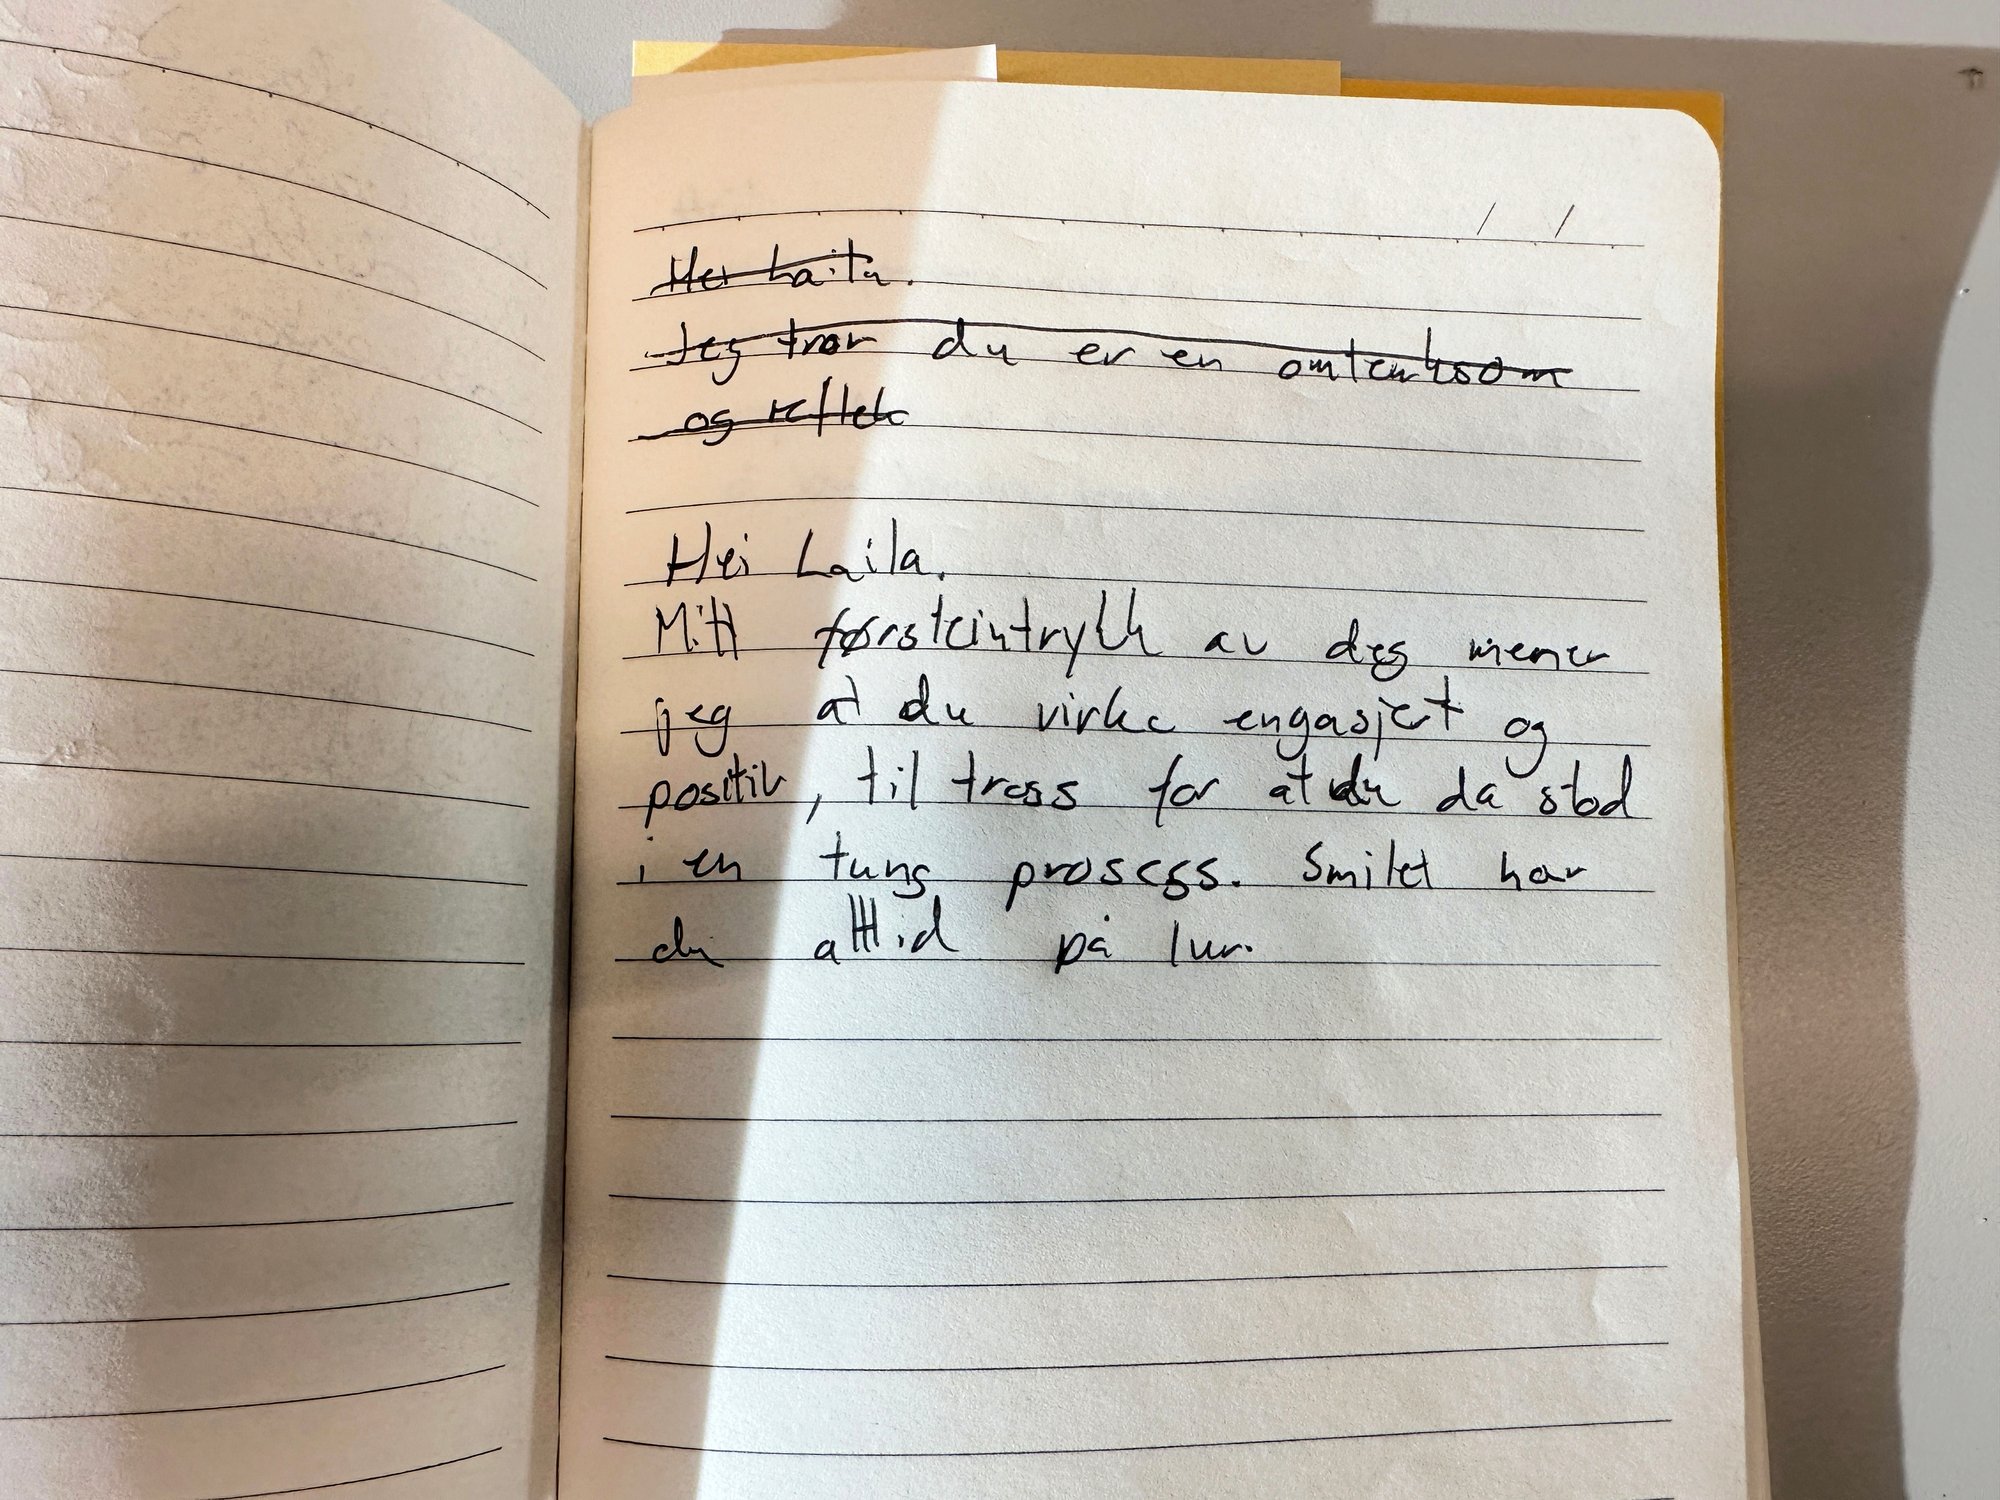 Hei Laila.
Jeg tror du er en omtenksom
og reflek
Hei Laila.
Mitt førsteintrykk av deg mener
jeg at du virke engasjert og
positiv, til tross for at du da stod
i en tung prosess. Smilet har
du alltid på lur.